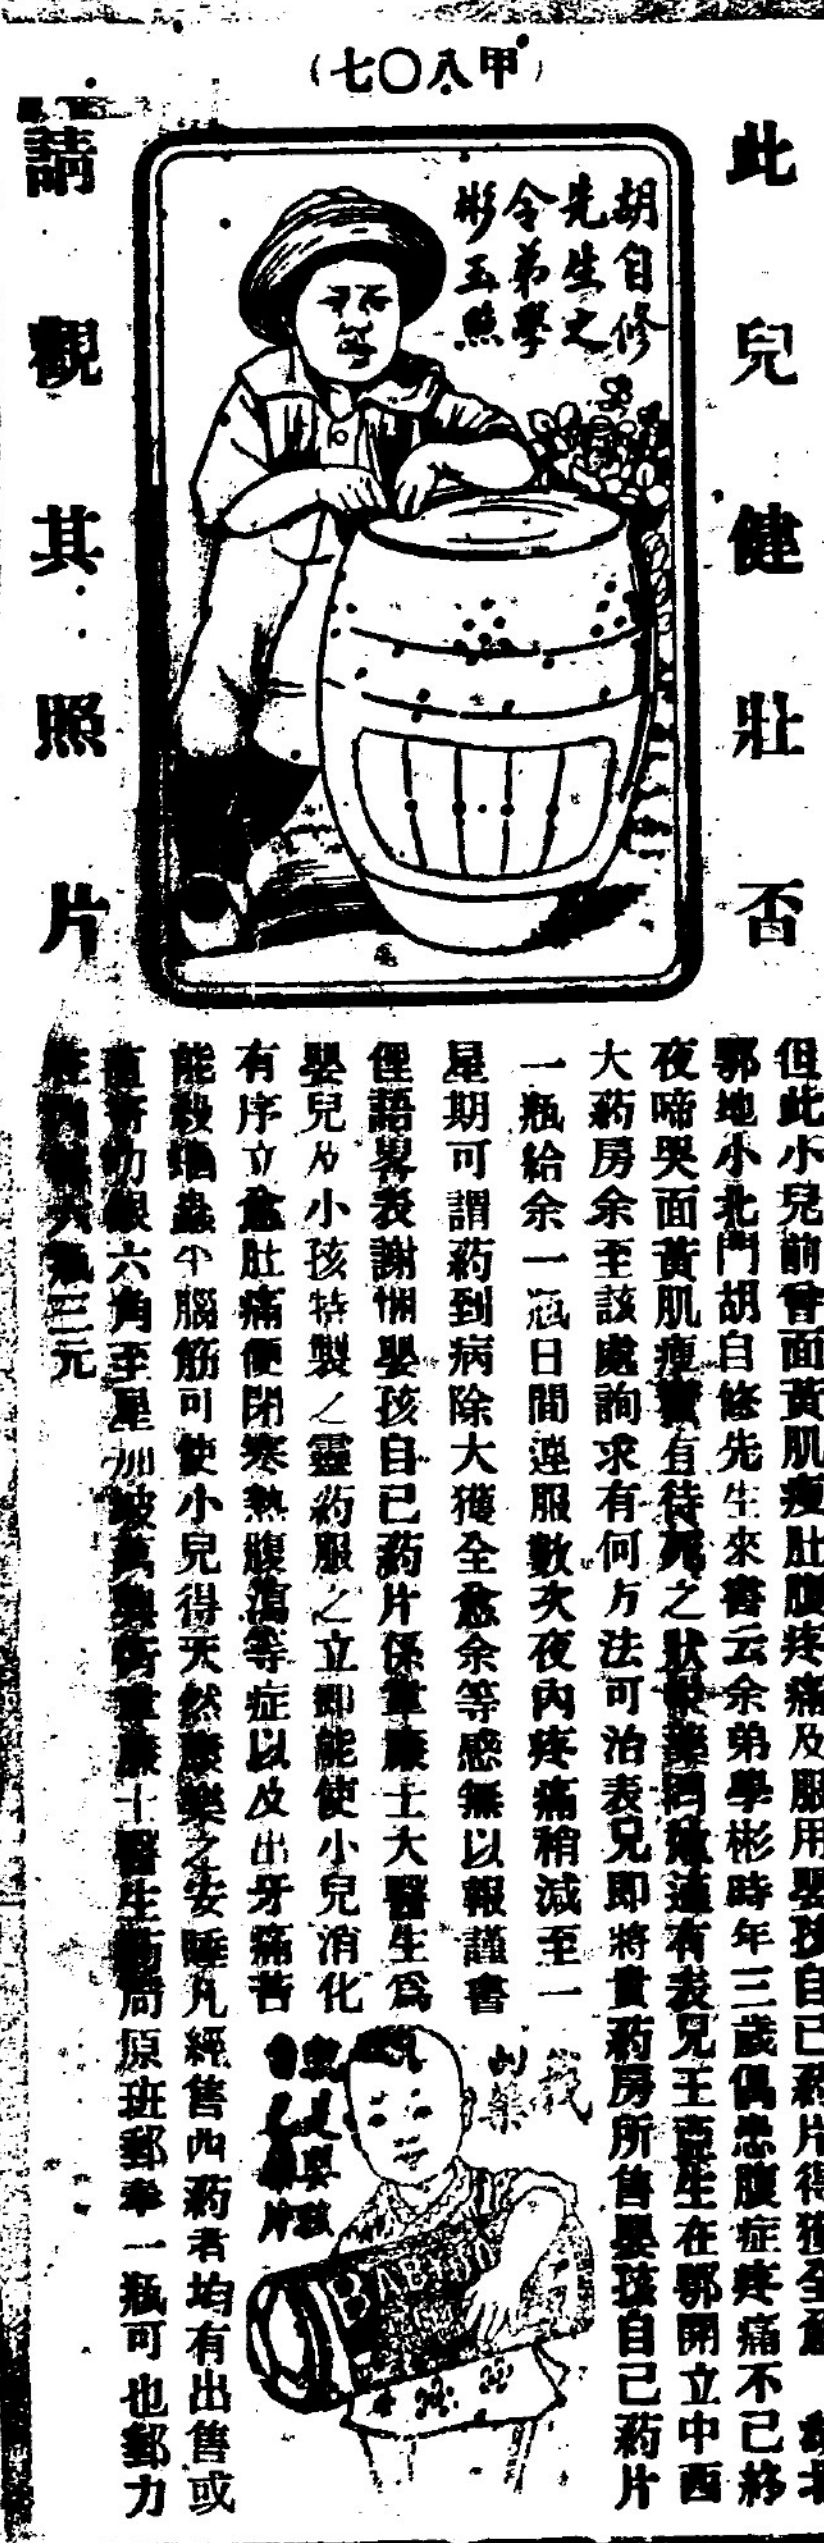 (七〇八甲)
此兒健壯否
請觀其照片
胡自修
先生之
令弟學
彬玉照
但此小兒前曾面黃肌瘦肚腹疼痛及服用嬰孩自己葯片得獲全愈
鄂地小北門胡自修先生來書云余弟學彬時年三歲偶患腹症疼痛不已終
夜啼哭面黃肌瘦有待死之狀適有表兄王亞生在鄂開立中西
大葯房余至該處詢求有何方法可治表兄即將貴葯房所售嬰孩自己葯片
一瓶給余一瓶日間連服數次夜內疼痛稍減至一
星期可謂葯到病除大獲全愈余等感無以報謹書
俚語畧表謝悃嬰孩自己葯片係韋廉士大醫生爲
嬰兒及小孩特製之靈葯服之立卽能使小兒消化
有序立愈肚痛便閉寒熱腹瀉等症以及出牙痛苦
能殺蛔蟲平腦筋可使小兒得天然康樂之安睡凡經售西葯者均有出售或
六角至星加坡韋廉士醫生葯局原班郵奉一瓶可也郵力
六瓶三元
就是嬰孩
自己藥片